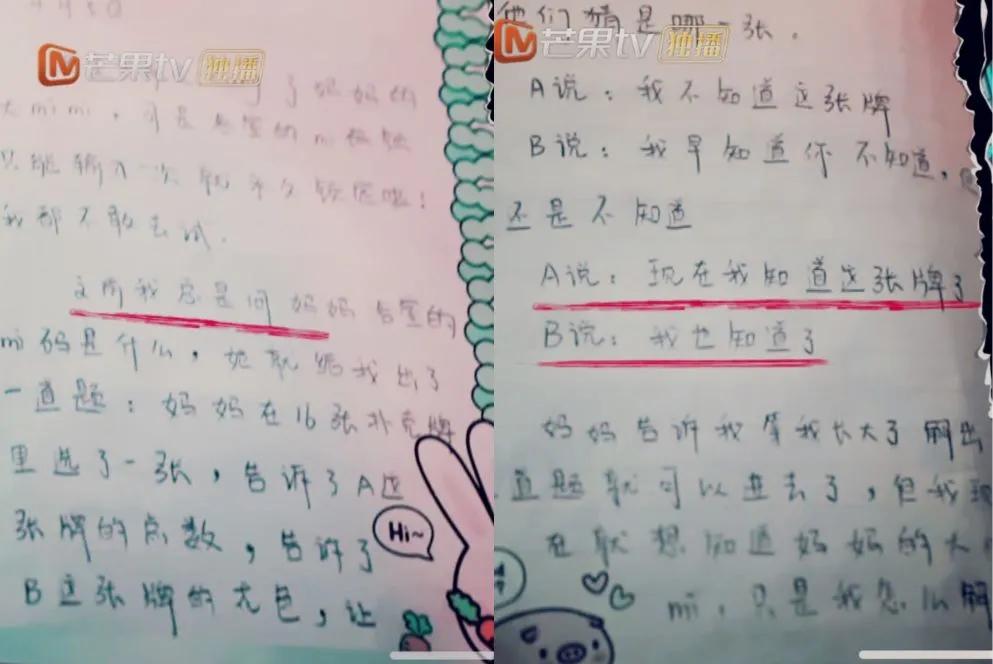 芒果tv 独播
了妈妈的
大mimi,可是
只能输入一次就永久锁定啦!
我都不敢去试.
之前我总是问妈妈
mi码是什么,她就给我出了
一道题:妈妈在16张扑克牌
里选了一张,告诉了A这
张牌的点数,告诉了
B这张牌的尤色,让
Hi~
他们猜是哪一张.
芒果tv 独播
A说:我不知道这张牌
B说:我早知道你不知道,
还是不知道
A说:现在我知道这张牌了
B说:我也知道了
妈妈告诉我等我长大了解出
道题就可以进去了,但我现
在就想知道妈妈的大
mi,只是我怎么解